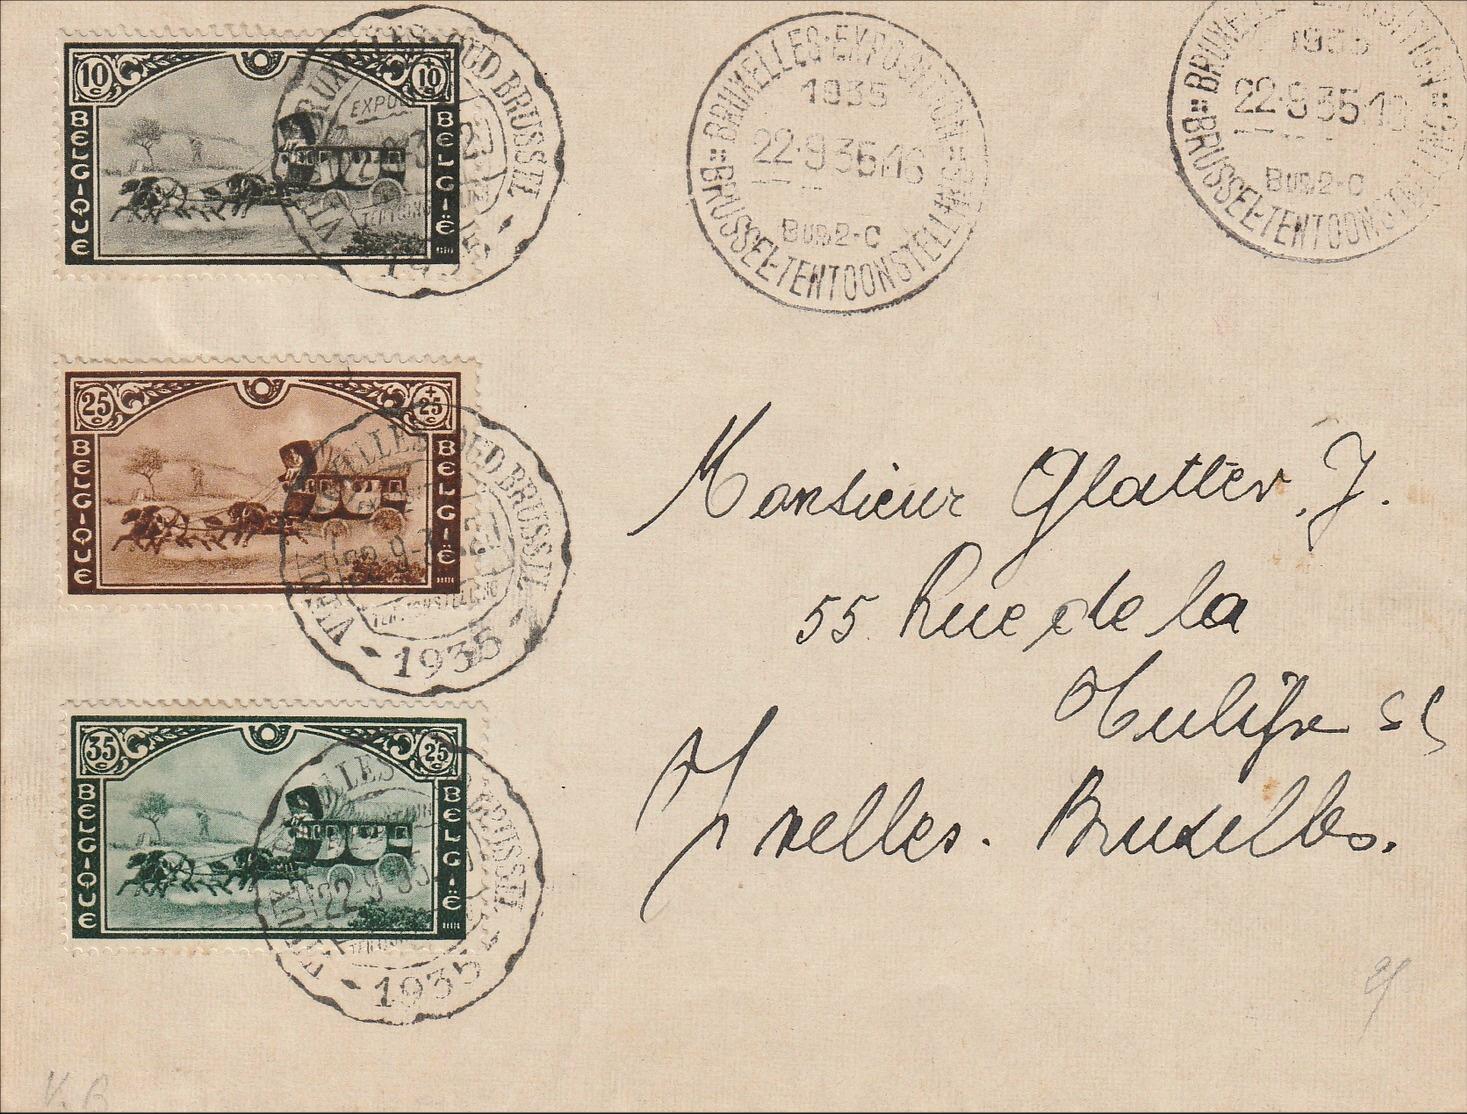 10c
+10c
BELGIQUE
BELGIË
VIEUX BRUXELLES · OUD BRUSSEL
1935
BRUXELLES-EXPOSITION
1935
22-9 35 16
BUD 2-C
BRUSSEL-TENTOONSTELLING
BRUXELLES-EXPOSITION
1935
22-9 35
BUD 2-C
BRUSSEL-TENTOONSTELLING
25c
+25c
BELGIQUE
BELGIË
VIEUX BRUXELLES · OUD BRUSSEL
22-9-3
TENTOONSTELLING
1935
35c
+25c
BELGIQUE
BELGIË
VIEUX BRUXELLES OUD BRUSSEL
22-9-35
1935
Monsieur Glatter, J.
55 Rue de la
Ixelles. Bruxelles.
V.B